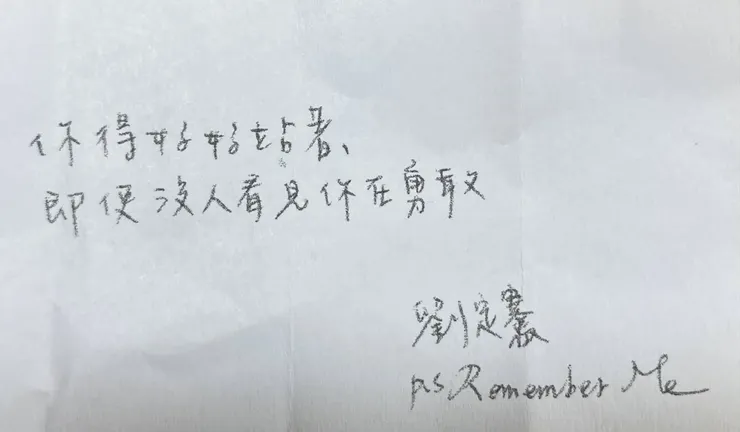 你得好好站著、
即便沒人看見你在勇敢
劉定騫
ps. Remember Me